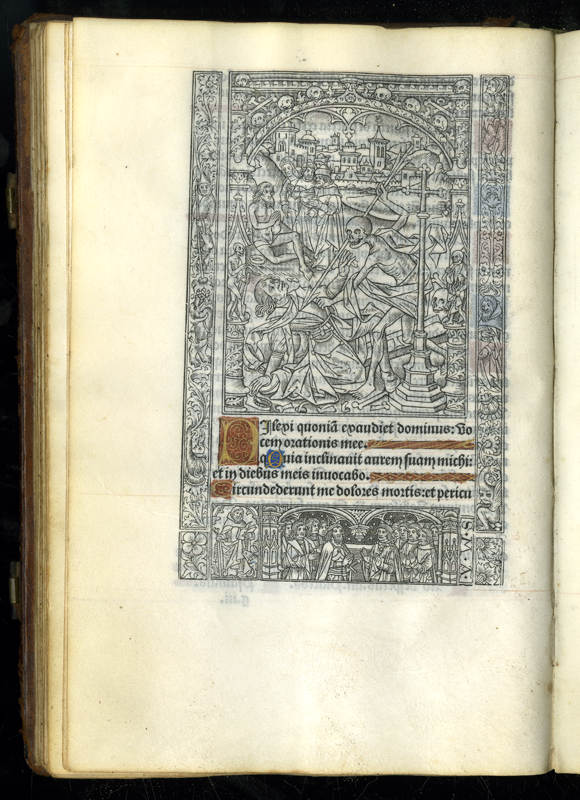 Dilexi quoniã exaudiet dominus: vo
cem orationis mee.
Quia inclinauit aurem suam michi:
et in diebus meis inuocabo.
Circundederunt me dolores mortis: et pericu